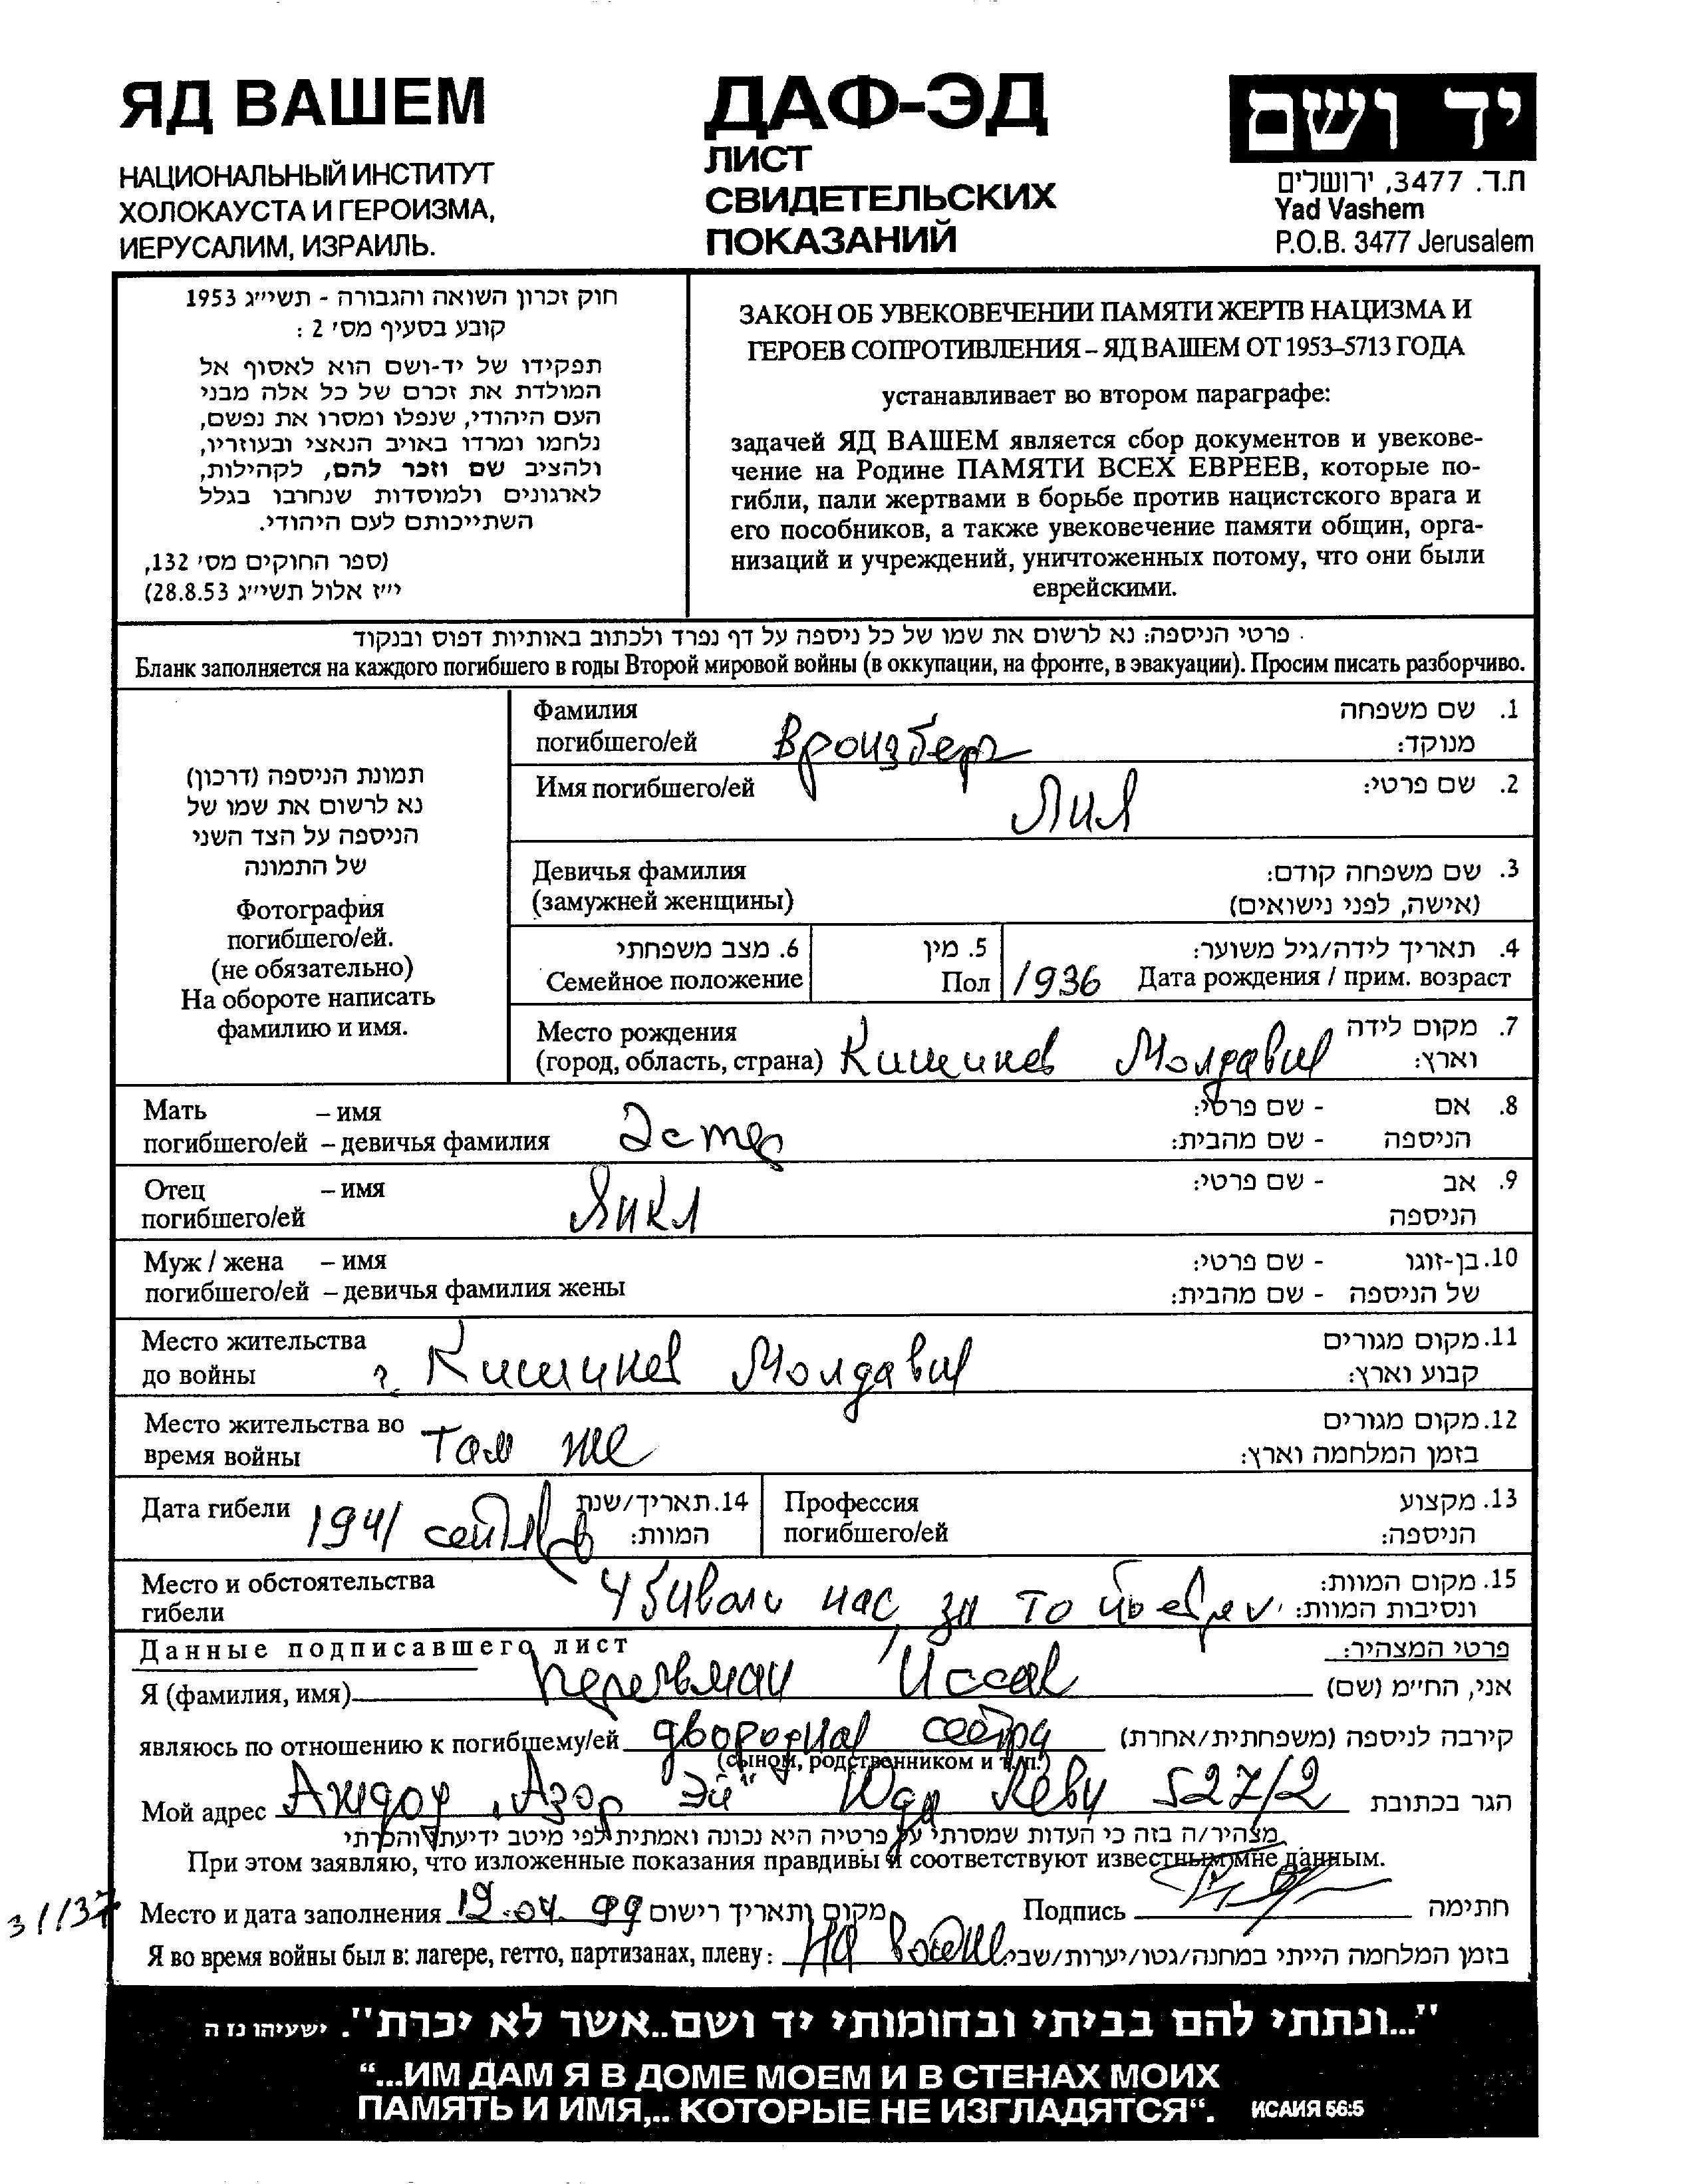 ЯД ВАШЕМ
НАЦИОНАЛЬНЫЙ ИНСТИТУТ
ХОЛОКАУСТА И ГЕРОИЗМА,
ИЕРУСАЛИМ, ИЗРАИЛЬ.
ДАФ-ЭД
ЛИСТ
СВИДЕТЕЛЬСКИХ
ПОКАЗАНИЙ
יד ושם
ת.ד. 3477, ירושלים
Yad Vashem
P.O.B. 3477 Jerusalem
חוק זכרון השואה והגבורה - תשי״ג 1953
קובע בסעיף מס׳ 2 :
תפקידו של יד-ושם הוא לאסוף אל
המולדת את זכרם של כל אלה מבני
העם היהודי, שנפלו ומסרו את נפשם,
נלחמו ומרדו באויב הנאצי ובעוזריו,
ולהציב שם וזכר להם, לקהילות,
לארגונים ולמוסדות שנחרבו בגלל
השתייכותם לעם היהודי.
(ספר החוקים מס׳ 132,
י״ז אלול תשי״ג 28.8.53)
ЗАКОН ОБ УВЕКОВЕЧЕНИИ ПАМЯТИ ЖЕРТВ НАЦИЗМА И
ГЕРОЕВ СОПРОТИВЛЕНИЯ – ЯД ВАШЕМ ОТ 1953–5713 ГОДА
устанавливает во втором параграфе:
задачей ЯД ВАШЕМ является сбор документов и увекове-
чение на Родине ПАМЯТИ ВСЕХ ЕВРЕЕВ, которые по-
гибли, пали жертвами в борьбе против нацистского врага и
его пособников, а также увековечение памяти общин, орга-
низаций и учреждений, уничтоженных потому, что они были
еврейскими.
פרטי הניספה: נא לרשום את שמו של כל ניספה על דף נפרד ולכתוב באותיות דפוס ובנקוד
Бланк заполняется на каждого погибшего в годы Второй мировой войны (в оккупации, на фронте, в эвакуации). Просим писать разборчиво.
תמונת הניספה (דרכון)
נא לרשום את שמו של
הניספה על הצד השני
של התמונה
Фотография
погибшего/ей.
(не обязательно)
На обороте написать
фамилию и имя.
Фамилия 1. שם משפחה
погибшего/ей Вроизберг מנוקד:
Имя погибшего/ей Лия 2. שם פרטי:
Девичья фамилия 3. שם משפחה קודם:
(замужней женщины) (אישה, לפני נישואים)
6. מצב משפחתי 5. מין 4. תאריך לידה/גיל משוער:
Семейное положение Пол 1936 Дата рождения / прим. возраст
Место рождения 7. מקום לידה
(город, область, страна) Кишинев Молдавия וארץ:
Мать – имя Эстер - שם פרטי: 8. אם
погибшего/ей – девичья фамилия - שם מהבית: הניספה
Отец – имя Янкл - שם פרטי: 9. אב
погибшего/ей הניספה
Муж / жена – имя - שם פרטי: 10. בן-זוגו
погибшего/ей – девичья фамилия жены - שם מהבית: של הניספה
Место жительства 11. מקום מגורים
до войны г. Кишинев Молдавия קבוע וארץ:
Место жительства во 12. מקום מגורים
время войны там же בזמן המלחמה וארץ:
Дата гибели 1941 14. תאריך/שנת המוות:
Профессия 13. מקצוע
погибшего/ей הניספה:
Место и обстоятельства 15. מקום המוות:
гибели Убивали нас за то ונסיבות המוות:
Данные подписавшего лист פרטי המצהיר:
Я (фамилия, имя) Перельман Иссак אני, החי״מ (שם)
являюсь по отношению к погибшему/ей двородная сестра קירבה לניספה (משפחתית/אחרת)
(сыном, родственником и т.п.)
Мой адрес Ашдод, Азор Эй" Юда Леви 527/2 הגר בכתובת
מצהיר/ה בזה כי העדות שמסרתי על פרטיה היא נכונה ואמתית לפי מיטב ידיעתי והכרתי.
При этом заявляю, что изложенные показания правдивы и соответствуют известным мне данным.
31137
Место и дата заполнения 19.04.99 מקום ותאריך רישום Подпись חתימה
Я во время войны был в: лагере, гетто, партизанах, плену: На בזמן המלחמה הייתי במחנה/גטו/יערות/שבי:
"...ונתתי להם בביתי ובחומותי יד ושם..אשר לא יכרת". ישעיהו נז ה
“...ИМ ДАМ Я В ДОМЕ МОЕМ И В СТЕНАХ МОИХ
ПАМЯТЬ И ИМЯ,.. КОТОРЫЕ НЕ ИЗГЛАДЯТСЯ“. ИСАИЯ 56:5